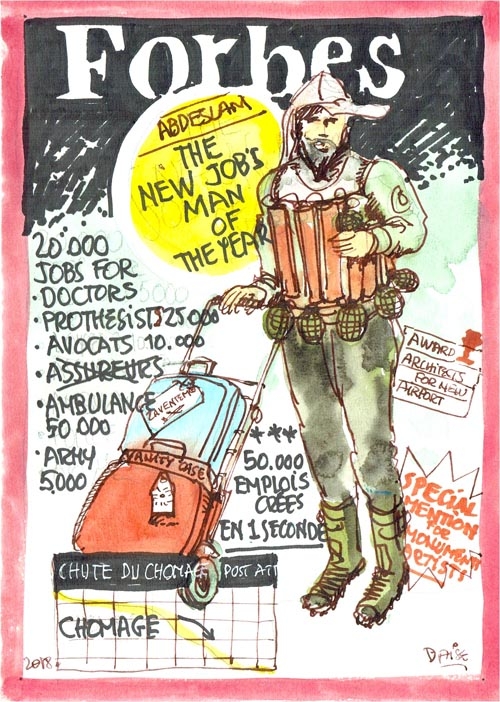 Forbes
ABDESLAM
THE
NEW JOB'S
MAN
OF
THE YEAR
20.000
JOBS FOR
• DOCTORS
• PROTHESISTS 25000
• AVOCATS 10.000
• ASSUREURS
• AMBULANCE
50 000
• ARMY
5.000
ZAVENTEM
VANITY CASE
***
50.000
EMPLOIS
CRÉES
EN 1 SECONDE
AWARD
ARCHITECTS
FOR NEW
AIRPORT
SPECIAL
MENTION
FOR
MONUMENT
ARTISTS
CHUTE DU CHOMAGE POST ATT
CHOMAGE
2018